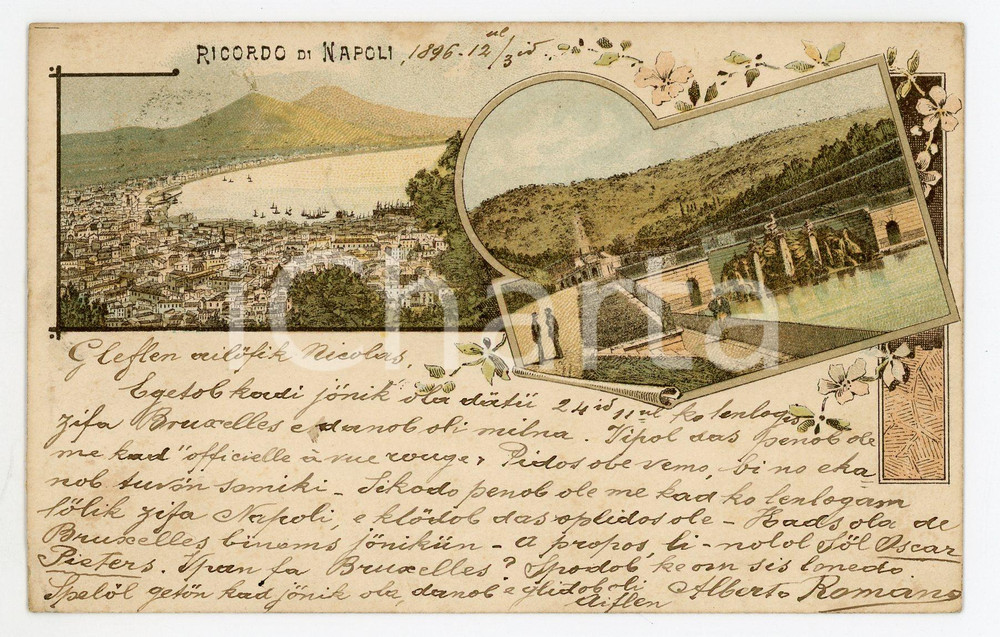 RICORDO DI NAPOLI, 1896-12ul/3id
iCharta
Gleflen vilöfik Nicolas,
Egetob kadi jönik ola dätü 24id 11ul ko lenlogis
zifa Bruxelles e danob oli milna. Vipol das penob ole
me kad "officielle à vue rouge, Pidos obe vemo, bi no eka
nob tuvön somiki - Sikodo penob ole me kad ko lenlogam
lölik zifa Napoli, e klödob das oplidos ole - Kads ola de
Bruxelles binoms jönikün - A propos, li-nolol Söl Oscar
Pieters. Vpan fa Bruxelles? Spodob ke om sis lonedo
Spelöl getön kad jönik ola, danob e glidob oli
Alberto Romano